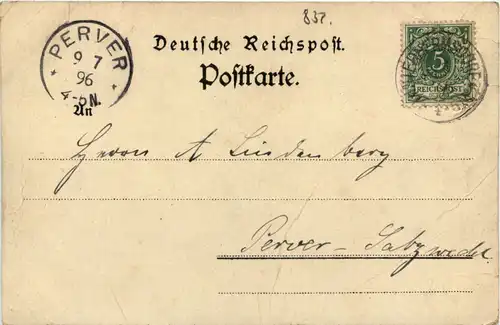 837.
PERVER
9 7
96
4-5N.
Deutsche Reichspost.
Postkarte.
5
REICHSPOST
An
Herrn A Lindenberg
Perver-Salzwedel